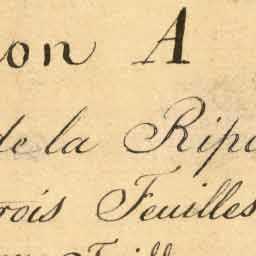 on A
de la Ripa
rois Feuilles